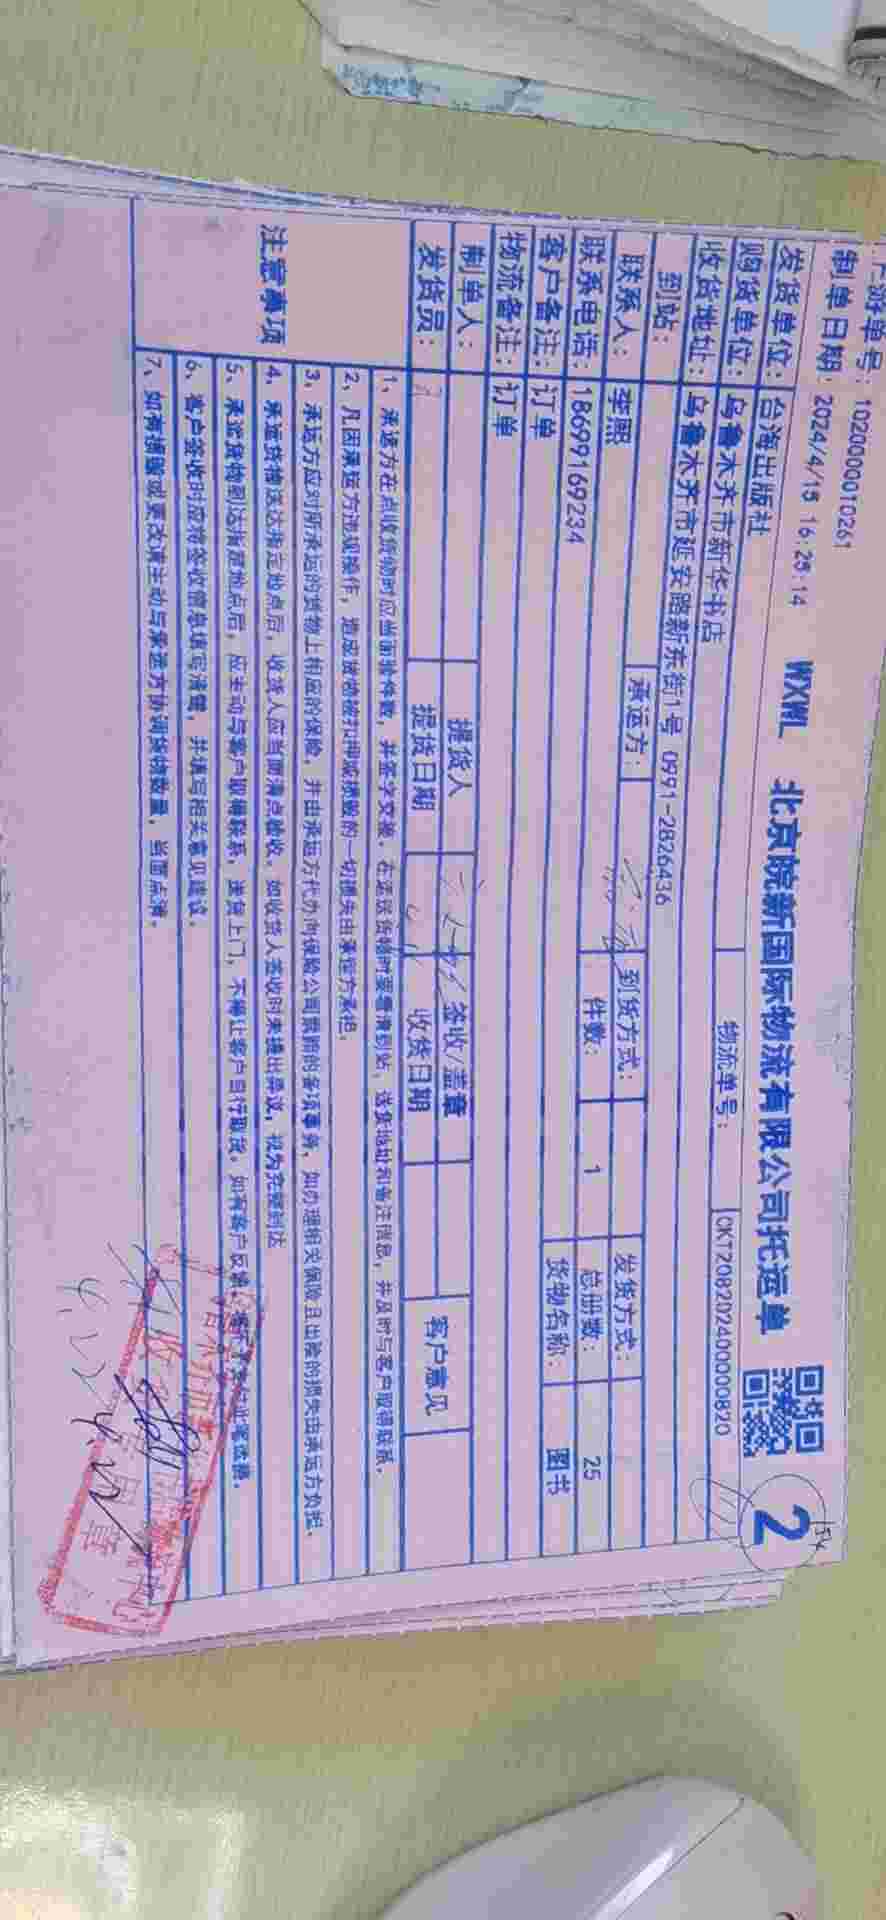 单号: 1020000010261
制单日期: 2024/4/15 16:25:14
WXWL 北京皖新国际物流有限公司托运单
2
发货单位: 台海出版社
物流单号: CKT2082024000000820
购货单位: 乌鲁木齐市新华书店
收货地址: 乌鲁木齐市延安路新东街1号 0991-2826436
到站: 承运方: 到货方式: 发货方式:
联系人: 李熙 件数: 1 总册数: 25
联系电话: 18699169234 货物名称: 图书
客户备注: 订单
物流备注: 订单
制单人: 提货人 签收/盖章 客户意见
发货员: 提货日期 收货日期
注意事项
1、承运方在点收货物时应当面验件数，并签字交接，在运送货物时要看清到站，送货地址和备注信息，并及时与客户取得联系。
2、凡因承运方违规操作，造成货物被扣押或损毁的一切损失由承运方承担。
3、承运方应对所承运的货物上相应的保险，并由承运方代办向保险公司索赔的各项事务，如办理相关保险且出险的损失由承运方负担。
4、承运货物送达指定地点后，收货人应当面清点验收，如收货人签收时未提出异议，视为完整到达
5、承运货物到达指定地点后，应主动与客户取得联系，送货上门，不得让客户自行取货。如有客户反馈，
6、客户签收时应将签收信息填写清楚，并填写相关意见建议。
7、如有播撒或更改请主动与承运方协调货物数量，当面点清。